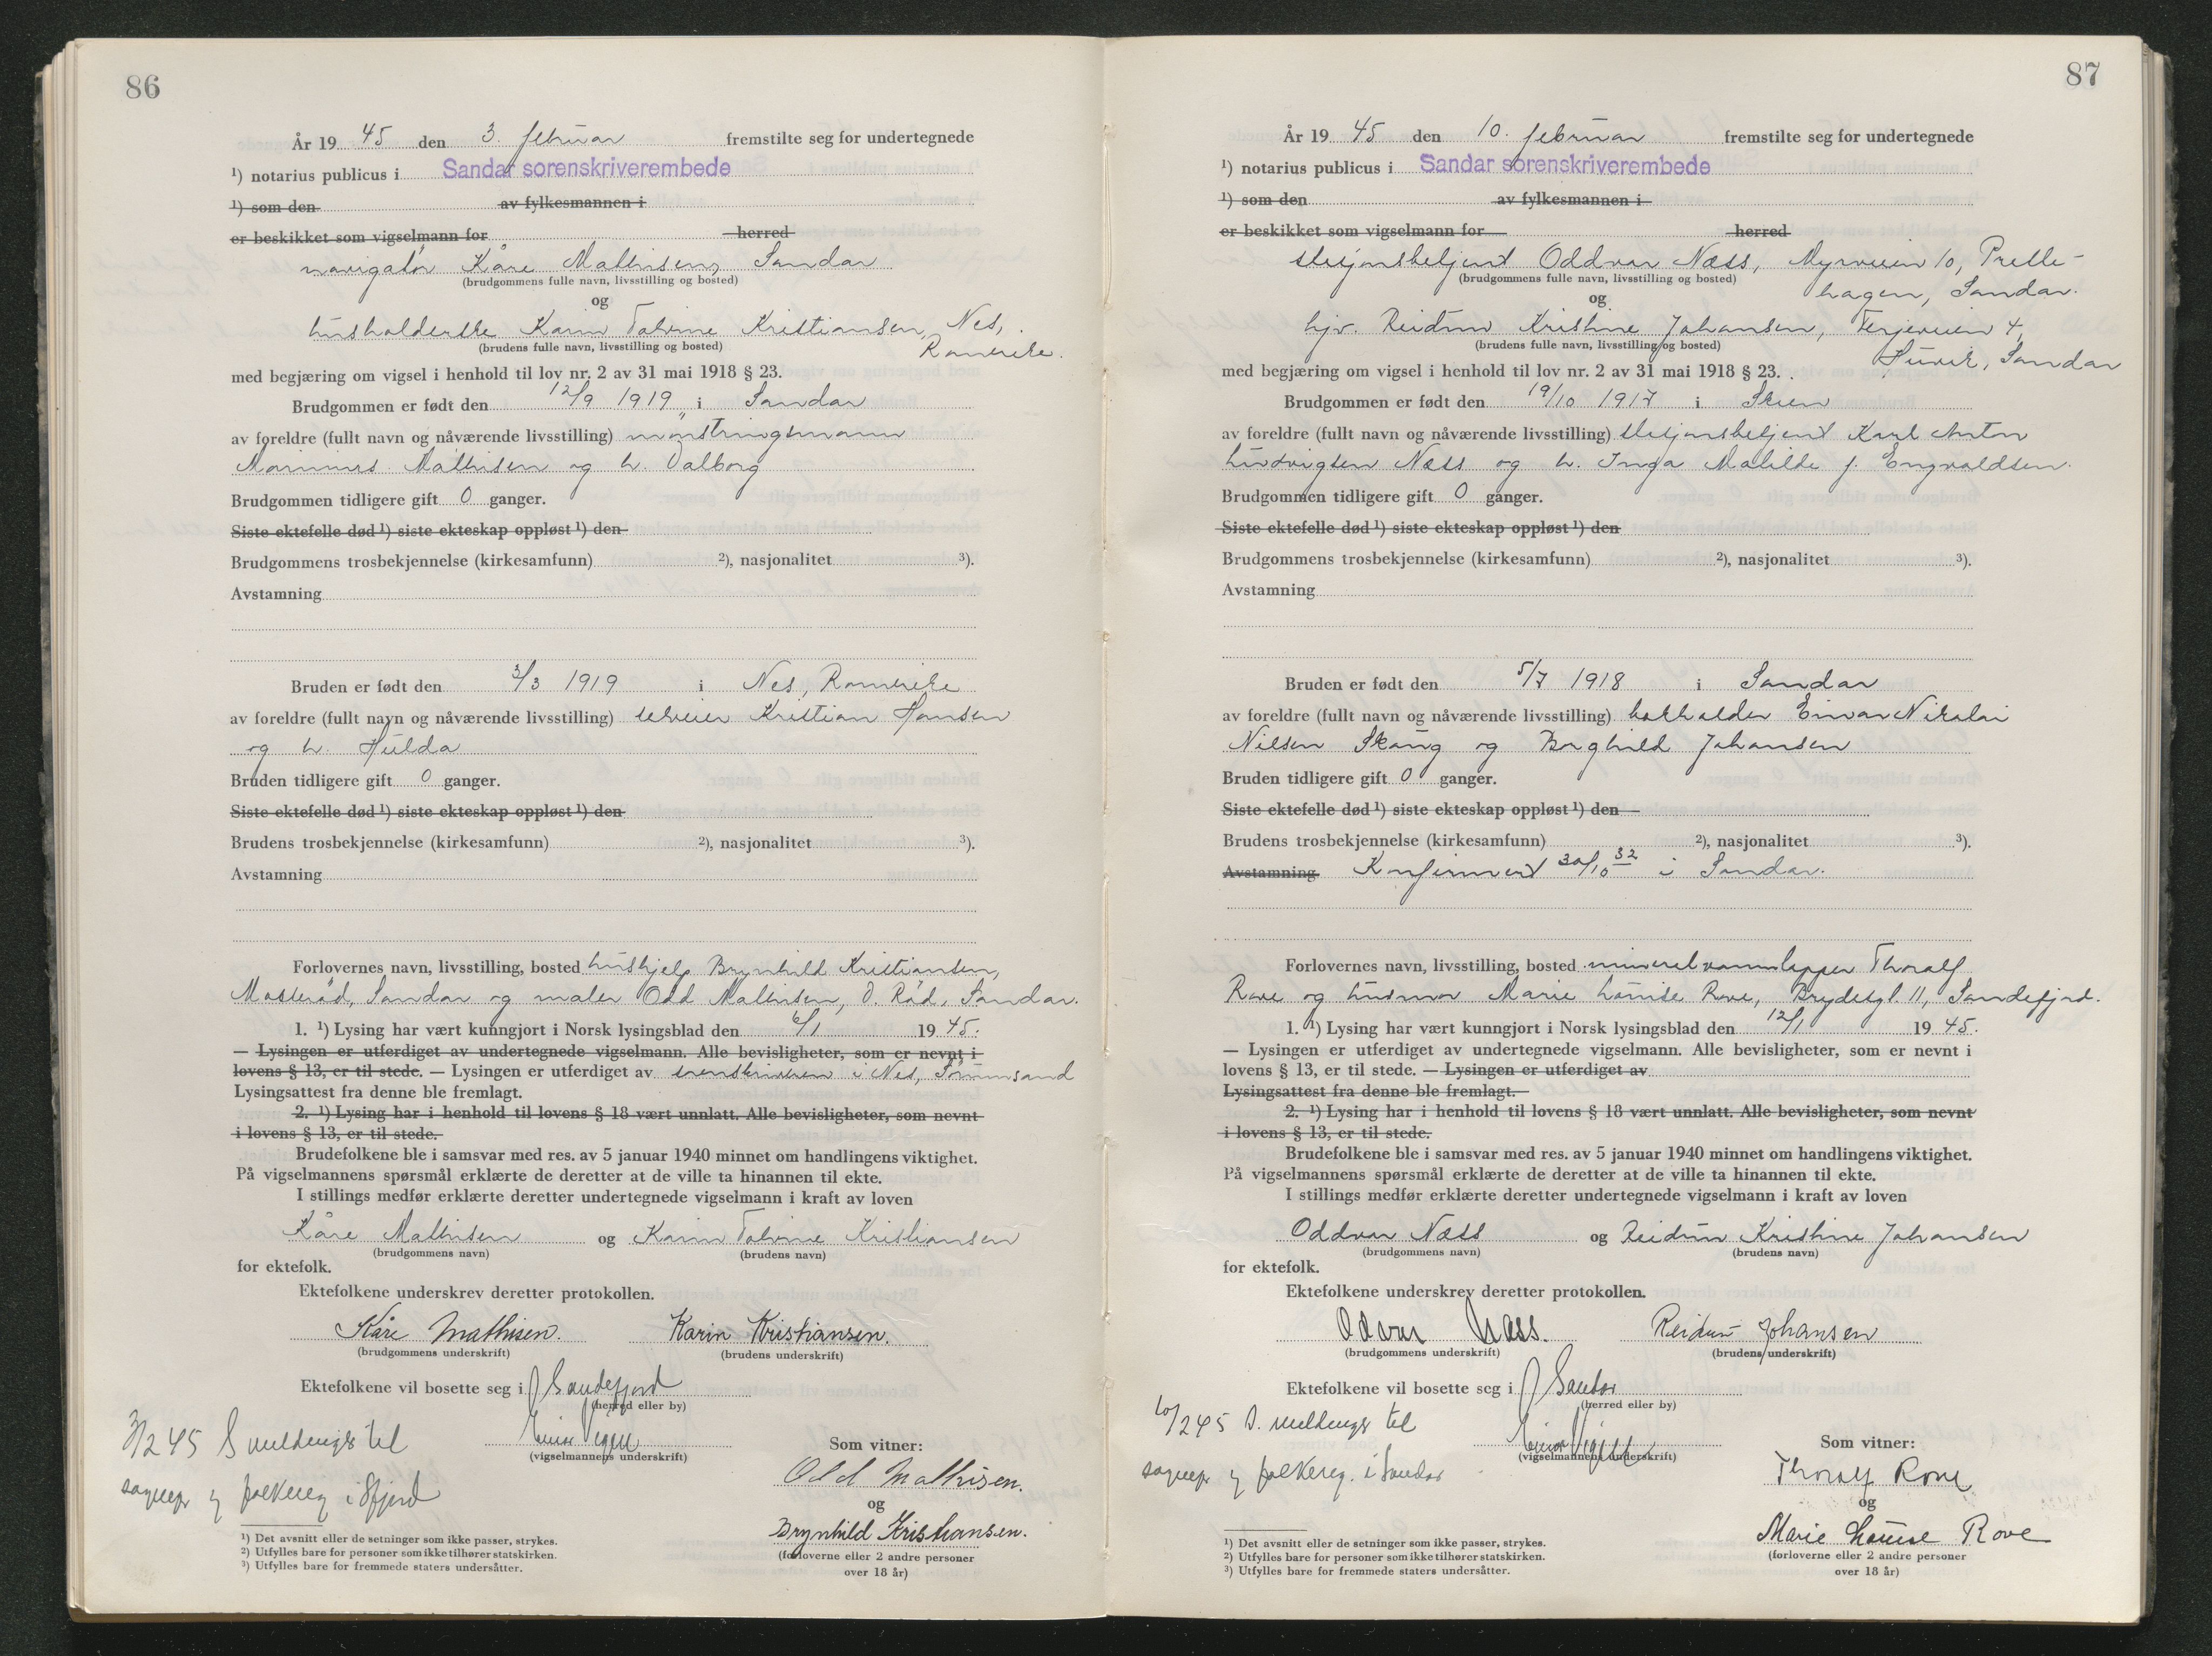 86
År 19 45 den 3. februar fremstilte seg for undertegnede
¹) notarius publicus i Sandar sorenskriverembede
¹) som den av fylkesmannen i
er beskikket som vigselmann for herred
navigatør Kåre Mathisen, Sandar
(brudgommens fulle navn, livsstilling og bosted)
og
husholderske Karin Kristiansen, Nes,
Romerike.
(brudens fulle navn, livsstilling og bosted)
med begjæring om vigsel i henhold til lov nr. 2 av 31 mai 1918 § 23.
Brudgommen er født den 12/9 1919 i Sandar
av foreldre (fullt navn og nåværende livsstilling) mønstringsmann
Marinius Mathisen og h. Valborg
Brudgommen tidligere gift 0 ganger.
Siste ektefelle død ¹) siste ekteskap oppløst ¹) den
Brudgommens trosbekjennelse (kirkesamfunn) ²), nasjonalitet ³).
Avstamning
Bruden er født den 3/3 1919 i Nes, Romerike
av foreldre (fullt navn og nåværende livsstilling) selveier Kristian Hansen
og h. Hulda
Bruden tidligere gift 0 ganger.
Siste ektefelle død ¹) siste ekteskap oppløst ¹) den
Brudens trosbekjennelse (kirkesamfunn) ²), nasjonalitet ³).
Avstamning
Forlovernes navn, livsstilling, bosted hushjelp Brynhild Kristiansen,
Mosserød, Sandar og maler Odd Mathisen, Ø. Rød, Sandar.
1. ¹) Lysing har vært kunngjort i Norsk lysingsblad den 6/1 19 45.
— Lysingen er utferdiget av undertegnede vigselmann. Alle bevisligheter, som er nevnt i
lovens § 13, er til stede. — Lysingen er utferdiget av sorenskriveren i Nes, Årnes
Lysingsattest fra denne ble fremlagt.
2. ¹) Lysing har i henhold til lovens § 18 vært unnlatt. Alle bevisligheter, som nevnt
i lovens § 13, er til stede.
Brudefolkene ble i samsvar med res. av 5 januar 1940 minnet om handlingens viktighet.
På vigselmannens spørsmål erklærte de deretter at de ville ta hinannen til ekte.
I stillings medfør erklærte deretter undertegnede vigselmann i kraft av loven
Kåre Mathisen og Karin Kristiansen
(brudgommens navn) (brudens navn)
for ektefolk.
Ektefolkene underskrev deretter protokollen.
Kåre Mathisen. Karin Kristiansen.
(brudgommens underskrift) (brudens underskrift)
Ektefolkene vil bosette seg i Sandefjord
(herred eller by)
3/2 45 meldings til
(vigselmannens underskrift)
Som vitner:
sognepr og folkereg i Sfjord
Odd Mathisen.
og
Brynhild Kristiansen.
(forloverne eller 2 andre personer
over 18 år)
¹) Det avsnitt eller de setninger som ikke passer, strykes.
²) Utfylles bare for personer som ikke tilhører statskirken.
³) Utfylles bare for fremmede staters undersåtter.
87
År 19 45 den 10. februar fremstilte seg for undertegnede
¹) notarius publicus i Sandar sorenskriverembede
¹) som den av fylkesmannen i
er beskikket som vigselmann for herred
stasjonsbetjent Oddvar Næss, Myrveien 10, Prelle-
hagen, Sandar.
(brudgommens fulle navn, livsstilling og bosted)
og
hjv. Reidun Kristine Johansen, Terjeveien 4,
Huvik, Sandar
(brudens fulle navn, livsstilling og bosted)
med begjæring om vigsel i henhold til lov nr. 2 av 31 mai 1918 § 23.
Brudgommen er født den 19/10 1917 i Skien
av foreldre (fullt navn og nåværende livsstilling) stasjonsbetjent Karl Anton
Ludvigsen Næss og h. Inga Matilde f. Engvaldsen.
Brudgommen tidligere gift 0 ganger.
Siste ektefelle død ¹) siste ekteskap oppløst ¹) den
Brudgommens trosbekjennelse (kirkesamfunn) ²), nasjonalitet ³).
Avstamning
Bruden er født den 5/7 1918 i Sandar
av foreldre (fullt navn og nåværende livsstilling) bokholder Einar Nikolai
Nilsen Skaug og Borghild Johansen
Bruden tidligere gift 0 ganger.
Siste ektefelle død ¹) siste ekteskap oppløst ¹) den
Brudens trosbekjennelse (kirkesamfunn) ²), nasjonalitet ³).
Avstamning Konfirmert 30/10 32 i Sandar.
Forlovernes navn, livsstilling, bosted mineralvanntapper Thoralf
Rove og husmor Marie Louise Rove, Brydesgt. 11, Sandefjord.
1. ¹) Lysing har vært kunngjort i Norsk lysingsblad den 12/1 19 45.
— Lysingen er utferdiget av undertegnede vigselmann. Alle bevisligheter, som er nevnt i
lovens § 13, er til stede. — Lysingen er utferdiget av
Lysingsattest fra denne ble fremlagt.
2. ¹) Lysing har i henhold til lovens § 18 vært unnlatt. Alle bevisligheter, som nevnt
i lovens § 13, er til stede.
Brudefolkene ble i samsvar med res. av 5 januar 1940 minnet om handlingens viktighet.
På vigselmannens spørsmål erklærte de deretter at de ville ta hinannen til ekte.
I stillings medfør erklærte deretter undertegnede vigselmann i kraft av loven
Oddvar Næss og Reidun Kristine Johansen
(brudgommens navn) (brudens navn)
for ektefolk.
Ektefolkene underskrev deretter protokollen.
Odvar Næss. Reidun Johansen
(brudgommens underskrift) (brudens underskrift)
Ektefolkene vil bosette seg i Sandar
(herred eller by)
10/2 45 D. meldings til
(vigselmannens underskrift)
Som vitner:
sognepr og folkereg. i Sandar
Thoralf Rove
og
Marie Louise Rove
(forloverne eller 2 andre personer
over 18 år)
¹) Det avsnitt eller de setninger som ikke passer, strykes.
²) Utfylles bare for personer som ikke tilhører statskirken.
³) Utfylles bare for fremmede staters undersåtter.